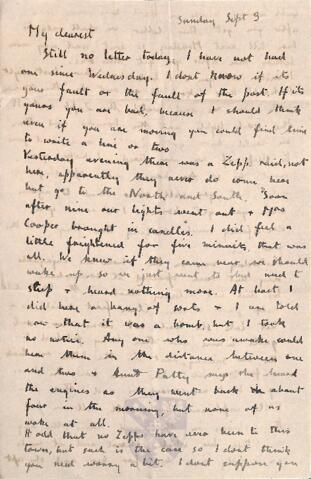 Sunday Sept 3
My dearest
Still no letter today, I have not had
one since Wednesday. I dont know if its
your fault or the fault of the post. If its
yours you are bad, because I should think
even if you are moving you could find time
to write a line or two
Yesterday evening there was a Zepp raid, not
here, apparently they never do come near
but go to the North and South. Soon
after nine our lights went out & Mrs
Cooper brought in candles. I did feel a
little frightened for five minutes, that was
all. We knew if they came near we should
wake up so we just went to bed
sleep & heard nothing more. At least I
did hear a bang of sorts & I am told
now that it was a bomb, but I took
no notice. Any one who was awake could
hear them in the distance between one
and two & Aunt Patty says she heard
the engines as they went back about
four in the morning, but none of us
woke at all.
odd that no Zepps have ever been to this
town, but such is the case so I dont think
you need worry a bit. I dont suppose you